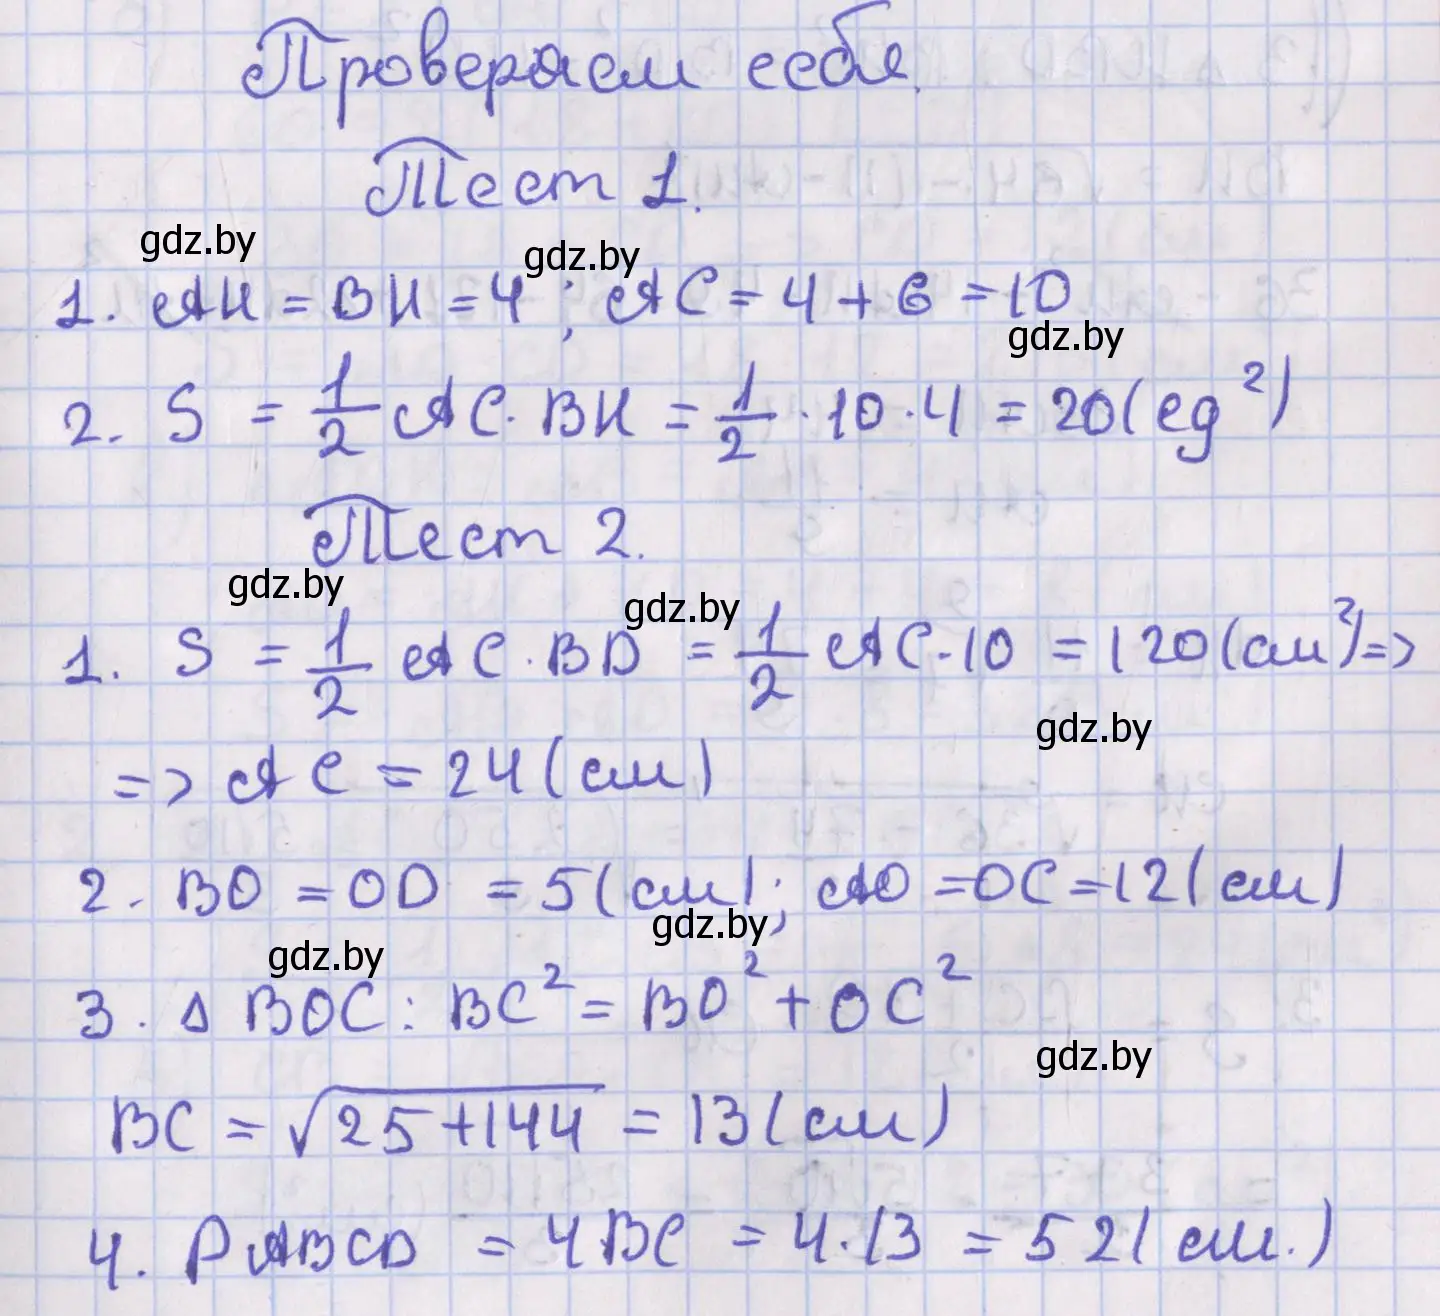 Проверяем себя.
Тест 1.
gdz.by gdz.by
1. AH = BH = 4 ; AC = 4 + 6 = 10
gdz.by
2. S = 1/2 AC · BH = 1/2 · 10 · 4 = 20 (ед²)
Тест 2.
gdz.by gdz.by
1. S = 1/2 AC · BD = 1/2 AC · 10 = 120 (см²) =>
gdz.by
=> AC = 24 (см)
2. BO = OD = 5 (см) ; AO = OC = 12 (см)
gdz.by gdz.by
3. Δ BOC : BC² = BO² + OC²
gdz.by
BC = √25+144 = 13 (см)
4. PABCD = 4BC = 4 · 13 = 52 (см.)